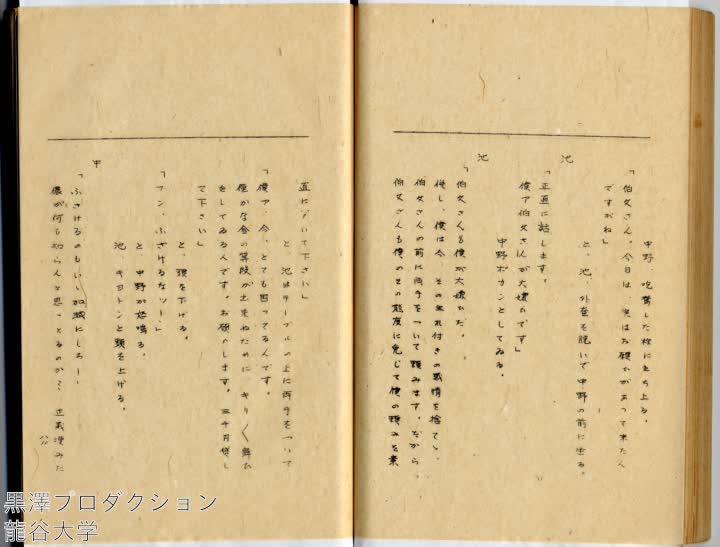 中野、吃驚した様に立ち上る。
「伯父さん。今日は、実はお願ひがあって来たん
ですがね」
と、池、外套を脱いで中野の前に坐る。
池
「正直に話します。
僕ア伯父さんが大嫌ひです」
中野ポカンとしてゐる。
池
「伯父さんも僕が大嫌ひだ。
然し、僕は今、その生れ付きの感情を捨てゝ、
伯父さんの前に両手をついて頼みます。だから、
伯父さんも僕のその態度に免じて僕の頼みを素
直にきいて下さい」
と、池はテーブルの上に両手をついて
「僕ア、今、とても困ってるんです。
僅かな金の算段が出来ねために、キリ〳〵舞ひ
をしてゐるんです。お願ひします。三千円貸し
て下さい」
と、頭を下げる。
「フン、ふざけるなツ!」
と、中野が怒鳴る。
池 キヨトンと頭を上げる。
中
「ふざけるのもいゝ加減にしろ!
儂が何も知らんと思っとるのか?
黒澤プロダクション
龍谷大学